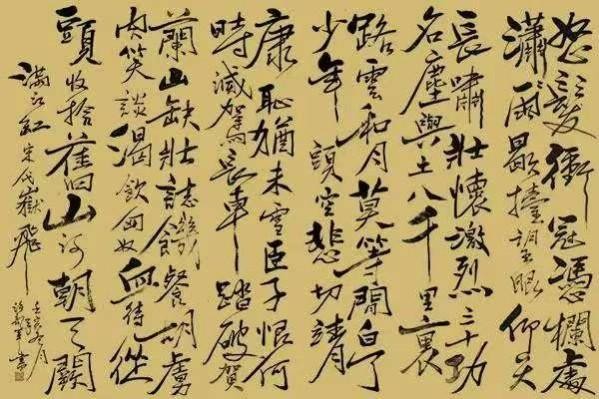 怒髮衝冠憑欄處
瀟瀟雨歇擡望眼仰天
長嘯壯懷激烈三十功
名塵與土八千里裏
路雲和月莫等閒白了
少年頭空悲切靖
康恥猶未雪臣子恨何
時滅駕長車踏破賀
蘭山缺壯誌饑餐胡虜
肉笑談渴飲匈奴血待從
頭收拾舊山河朝天闕
滿江紅宋代嶽飛